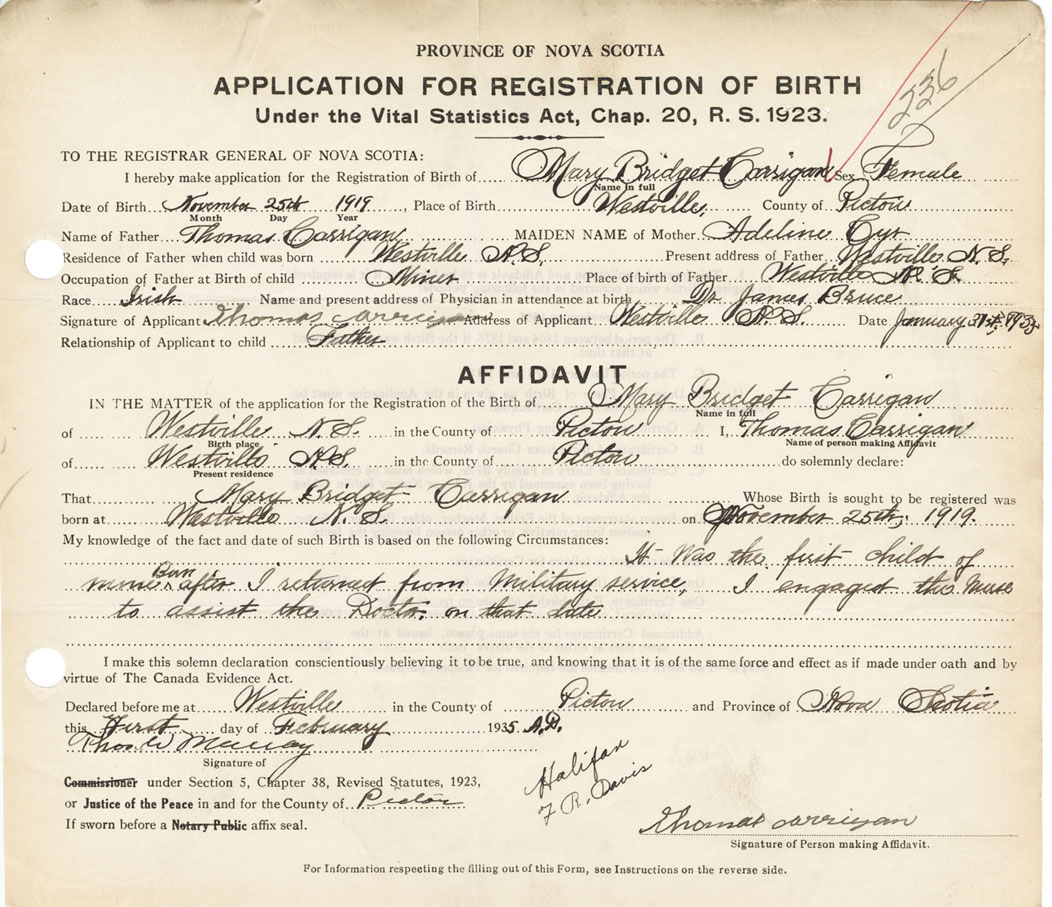 PROVINCE OF NOVA SCOTIA
236
APPLICATION FOR REGISTRATION OF BIRTH
Under the Vital Statistics Act, Chap. 20, R. S. 1923.
TO THE REGISTRAR GENERAL OF NOVA SCOTIA:
I hereby make application for the Registration of Birth of Mary Bridget Carrigan Sex Female
Name in full
Date of Birth November 25th 1919, Place of Birth Westville, County of Pictou
Month Day Year
Name of Father Thomas Carrigan MAIDEN NAME of Mother Adeline Cyr
Residence of Father when child was born Westville N.S. Present address of Father Westville N.S.
Occupation of Father at Birth of child Miner Place of birth of Father Westville N.S.
Race Irish Name and present address of Physician in attendance at birth Dr. James Bruce
Signature of Applicant Thomas Carrigan Address of Applicant Westville N.S. Date January 31st, 1935
Relationship of Applicant to child Father
AFFIDAVIT
IN THE MATTER of the application for the Registration of the Birth of Mary Bridget Carrigan
Name in full
of Westville N.S. in the County of Pictou I, Thomas Carrigan
Birth place Name of person making Affidavit
of Westville N.S. in the County of Pictou do solemnly declare:
Present residence
That Mary Bridget Carrigan Whose Birth is sought to be registered was
born at Westville N.S. on November 25th, 1919.
My knowledge of the fact and date of such Birth is based on the following Circumstances: It Was the first child of
mine Born after I returned from Military service, I engaged the Nurse
to assist the Doctor, on that date
I make this solemn declaration conscientiously believing it to be true, and knowing that it is of the same force and effect as if made under oath and by
virtue of The Canada Evidence Act.
Declared before me at Westville in the County of Pictou and Province of Nova Scotia
this First day of February 1935 A.D.
Signature of
Commissioner under Section 5, Chapter 38, Revised Statutes, 1923,
or Justice of the Peace in and for the County of Pictou
If sworn before a Notary Public affix seal.
Halifax
F R. Davis
Thomas Carrigan
Signature of Person making Affidavit.
For Information respecting the filling out of this Form, see Instructions on the reverse side.